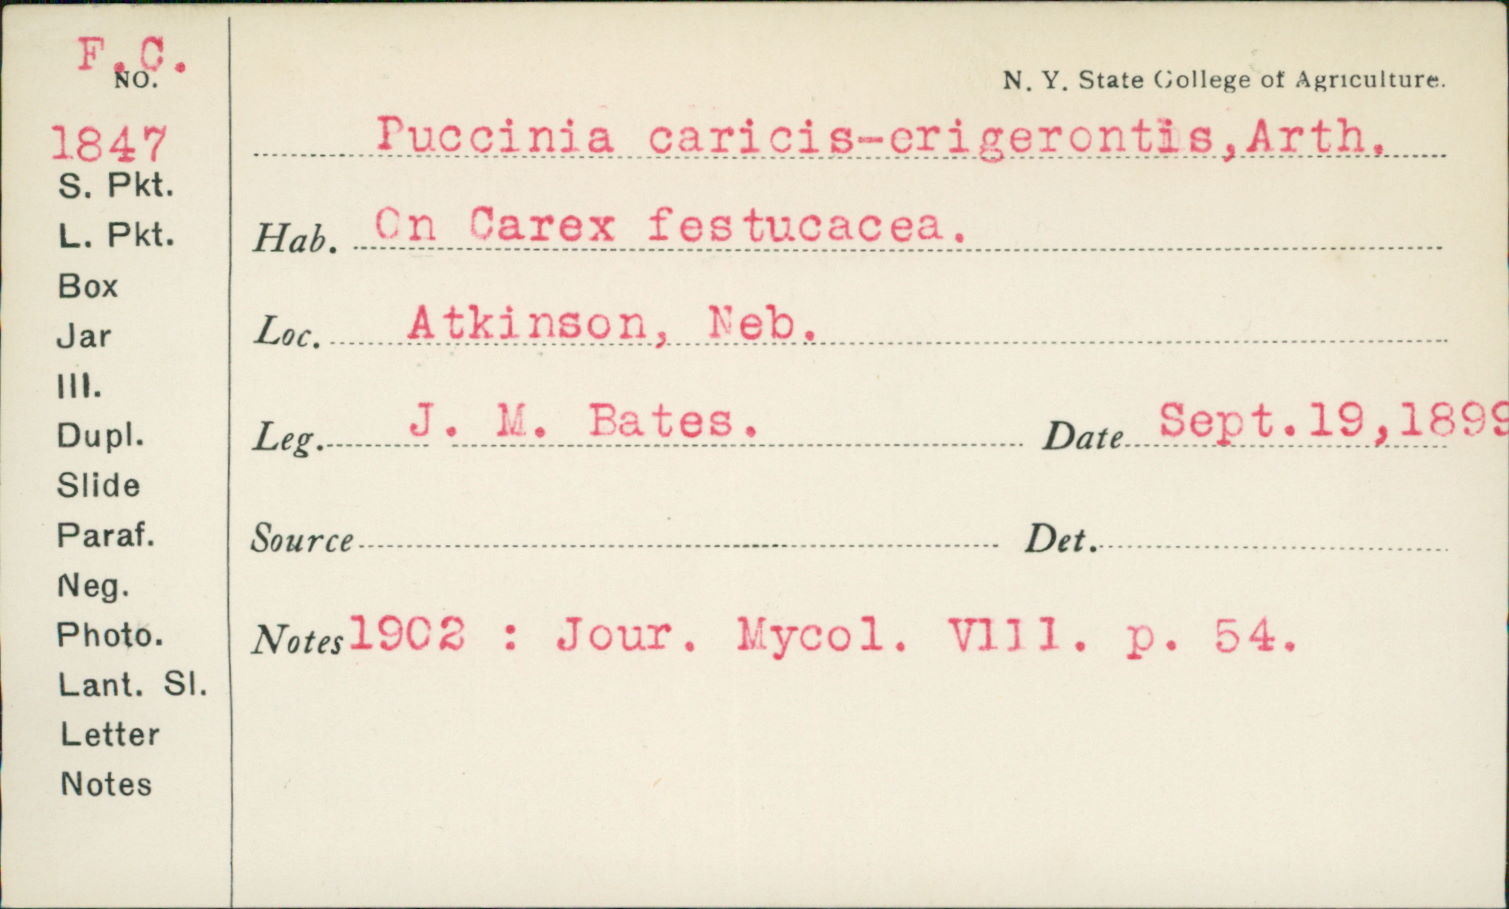 F.C.
NO.
1847
S. Pkt.
L. Pkt.
Box
Jar
Ill.
Dupl.
Slide
Paraf.
Neg.
Photo.
Lant. Sl.
Letter
Notes
N. Y. State College of Agriculture.
Puccinia caricis-erigerontis, Arth.
Hab. On Carex festucacea.
Loc. Atkinson, Neb.
Leg. J. M. Bates. Date Sept.19,1899
Source Det.
Notes 1902 : Jour. Mycol. Vlll. p. 54.